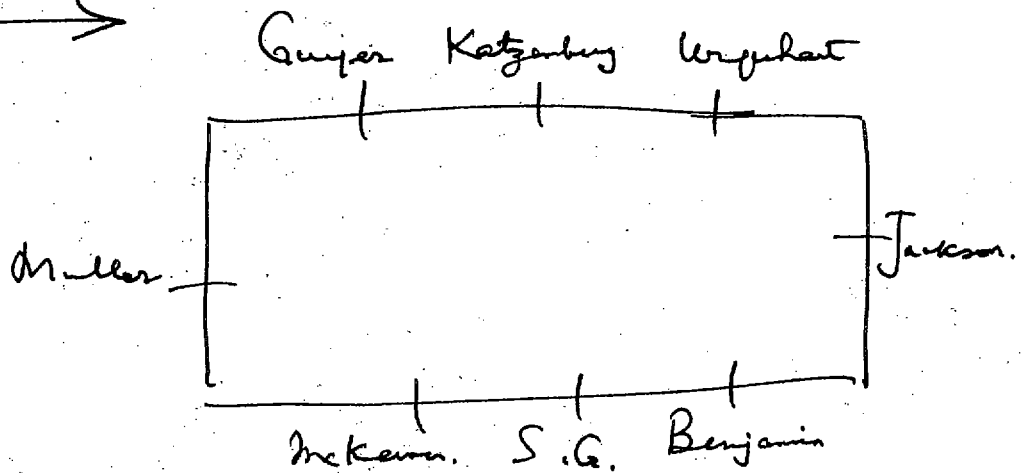 Guyer Katzenberg Urquhart
Muller
Jackson.
McKeown. S.G. Benjamin